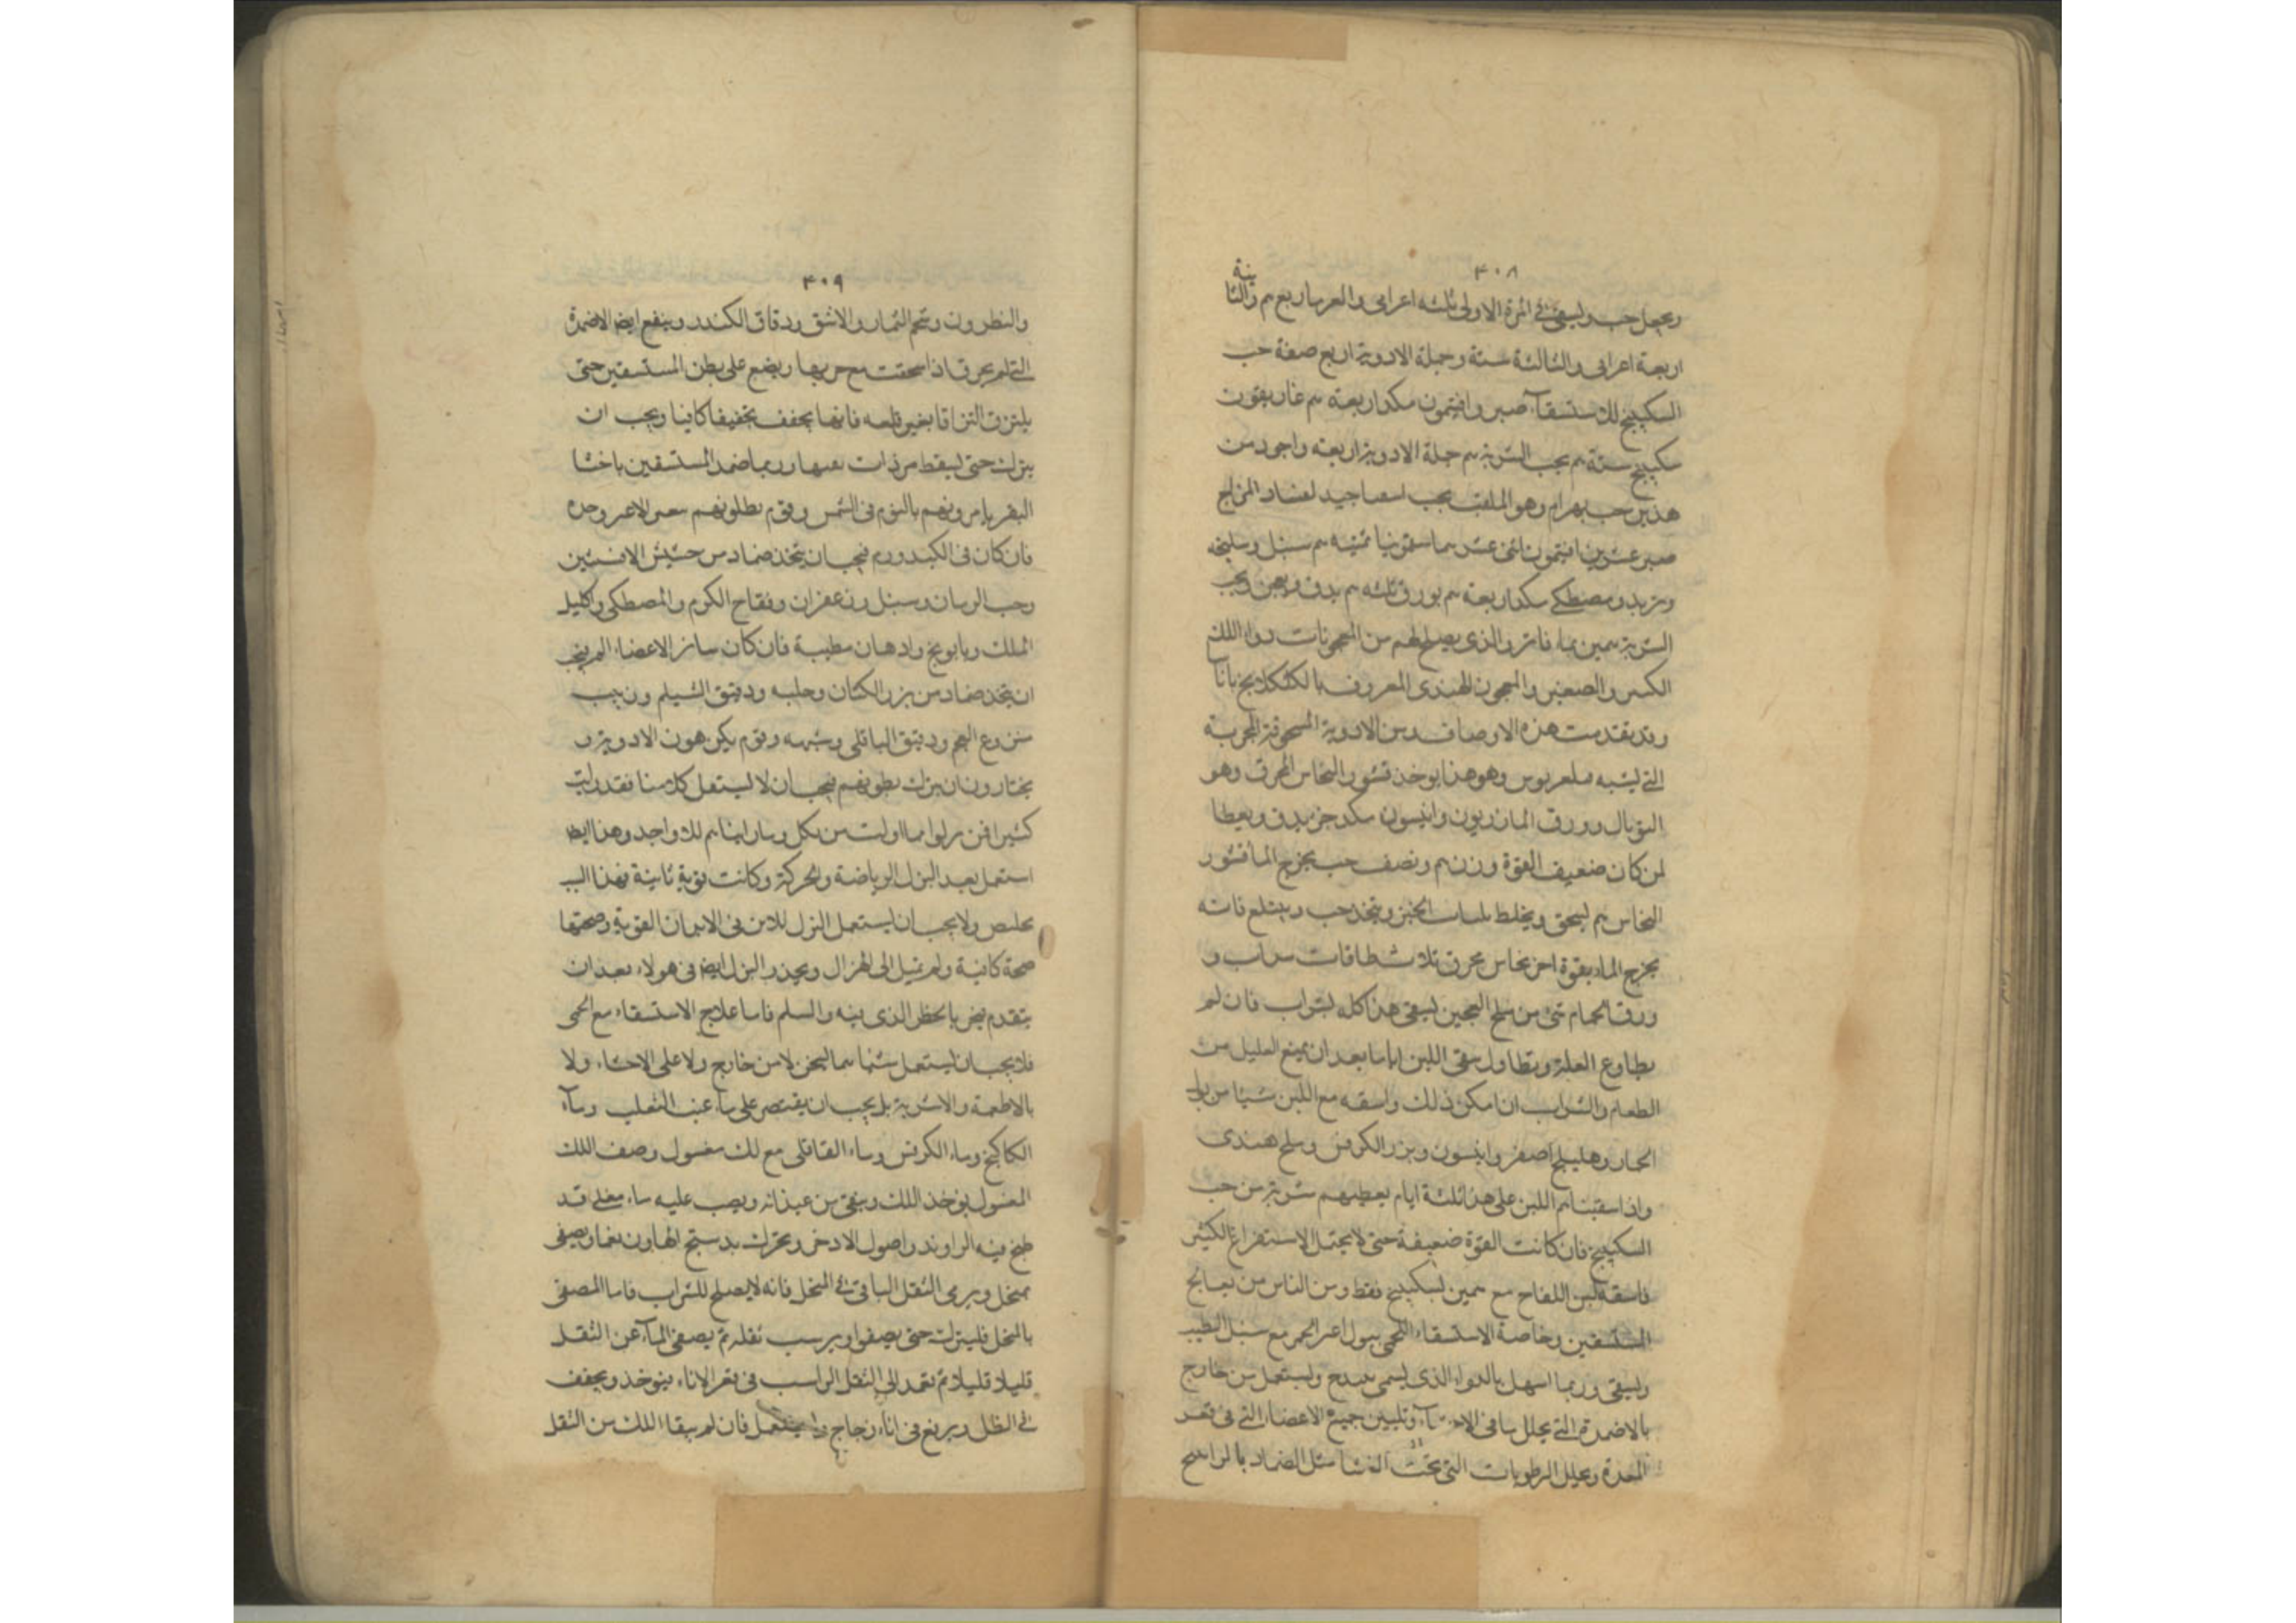 ٤٠٨
ويجعل حب ويسقى في المرة الاولى ثلثه اعرابى والعرب اربع م والثانية
اربعة اعرابى والثالثة ستة وجملة الادوية اربع صفة حب
السكبينج للاستسقآء صبر وافيتمون مكد اربعة م غاريقون
سكبينج ستة م يحب الشربة م جملة الادوية اربعه واجود من
هذين حب بهرام وهو الملقب بحب جيد لفساد المزاج
صبر عشرين افتيمون اثنى عشر سقمونيا ثمنيه م سنبل وسليخه
وتربد ومصطكى مكد اربعة م بورق ثلثه م يدق ويعجن ويحب
الشربة مين بماء فاتر والذى يصلح لهم من المعجونات دواء اللك
الكبير والصغير والمعجون الهندى المعروف بالكلكلانج بانا
وقد تقدمت هذه الاوصاف ومن الادوية المسحوقة المجربة
التى تشبه وهو هذا يوخذ قشور النحاس المحرق وهو
التوبال وورق المازريون وانيسون مكد جز يدق ويعطا
لمن كان ضعيف القوة وزن م ونصف حب يخرج الما قشور
النحاس م يسحق ويخلط بلباب الخبز ويتخذ حب ويبتلع فانه
يخرج الماء بقوة اخر نحاس محرق ثلاث طاقات سداب و
ورق الحمام شى من ملح العجين يسقى هذا كله بشراب فان لم
يطاوع العلة وتطاول سقى اللبن اياما بعد ان يمنع العليل من
الطعام والشراب ان امكن ذلك واسقه مع اللبن شيا من بول
الحمار وهليلج اصفر وانيسون وبزر الكرفس وملح هندى
واذا سقيتا م اللبن على هذا ثلثة ايام يعطيهم شربة من حب
السكبينج فان كانت القوة ضعيفة حتى لا يحتمل الاستفراغ الكثير
فاسقه لبن اللقاح مع مين السكبينج فقط ومن الناس من يعالج
المستسقين وخاصة الاستسقاء اللحمى ببول اعز الحمر مع سنبل الطيب
ويسقى وربما اسهل بالدواء الذى يسمى ويستعمل من خارج
بالاضمدة التى يحلل ما فى وتليين جميع الاعضاء التى فى قعر
المعدة ويحلل الرطوبات التى تحت الغشا مثل الضماد بالراسح
٤٠٩
والنطرون وشحم الثمار والاشق ودقاق الكندر وينفع ايضا الاضمدة
التى لم يحرق اذا سحقت مع حريها ويضع على بطن المستسقين حتى
يلتزق التزاقا بغير قلعه فانها يجفف تجفيفا كافيا ويجب ان
يترك حتى يسقط من ذات نفسها وربما ضمد المستسقين باخثا
البقر يامرونهم بالنوم فى الشمس وقوم يطلونهم وحده
فان كان فى الكبد ورم فيجب ان يتخذ ضماد من حشيش الافسنتين
وحب الرمان وسنبل وزعفران وفقاح الكرم والمصطكى واكليل
الملك وبابونج وادهان مطيبة فان كان سائر الاعضاء الم فيجب
ان يتخذ ضماد من بزر الكتان وحلبه ودقيق الشيلم وزبيب
منزوع العجم ودقيق الباقلى وشبهه وقوم يكرهون الادوية و
يختارون ان يترك بطونهم فيجب ان لا يستعمل كلامنا فقد رايت
كثيرا
استعمل بعد البزل الرياضة والحركة وكانت قوية ثانية فهذا اليـ
تخلص ولا يجب ان يستعمل البزل للابن فى الابدان القوية وصحتها
صحة كافية ولم تميل الى الهزال ويحذر البزل ايضا فى هولاء بعد ان
يتقدم يخبر بالخطر الذى فيه والسلم فاما علاج الاستسقاء مع الحمى
فلا يجب ان يستعمل شيا مما يسخن لا من خارج ولا على الاحشاء ولا
بالاطعمة والاشربة بل يجب ان يقتصر على ماء عنب الثعلب ومآء
الكاكنج وماء الكرفس وماء القاقلى مع لك مغسول وصف اللك
المغسول يوخذ اللك وينقى من عيدانه ويصب عليه ماء مغلى قد
طبخ فيه الراوند واصول الادخر ويحرك بدستج الهاون نعما ويصفى
بمنخل ويرمى الثقل الباقى فى المنخل فانه لا يصلح للشراب فاما المصفى
بالنخل فليترك حتى يصفوا ويرسب ثقله ثم يصفى المآء عن الثقل
قليلا قليلا ثم تعمد الى الثقل الراسب فى قعر الاناء فيوخذ ويجفف
فى الظل ويرفع فى اناء زجاج ويستعمل فان لم يبقا اللك من الثقل